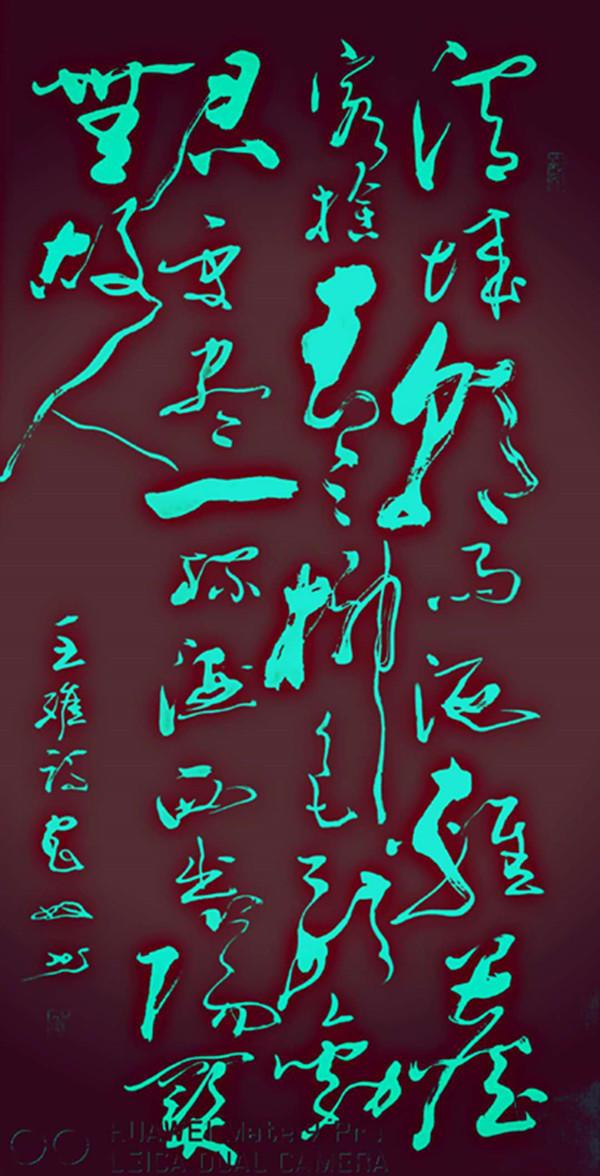 渭城朝雨浥輕塵
客捨青々柳色新勸
君更尽一杯酒西出陽關
無故人
王維詩
HUAWEI Mate 9 Pro
LEICA DUAL CAMERA